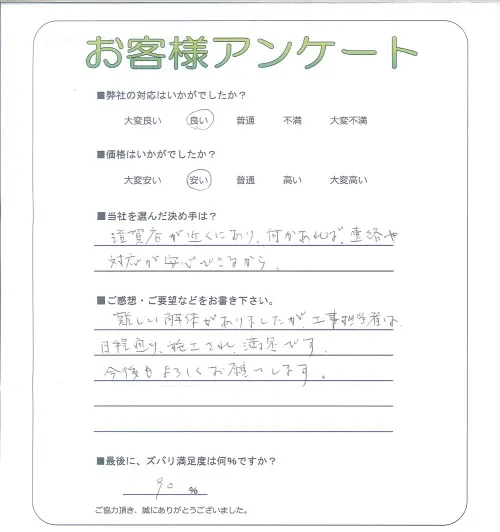 お客様アンケート
■弊社の対応はいかがでしたか?
大変良い 良い 普通 不満 大変不満
■価格はいかがでしたか?
大変安い 安い 普通 高い 大変高い
■当社を選んだ決め手は?
滋賀店が近くにあり、何かあれば、連絡や
対応が安心できるから、
■ご感想・ご要望などをお書き下さい。
難しい解体がありましたが、工事担当者は、
日程通り、施工され、満足です。
今後もよろしくお願いします。
■最後に、ズバリ満足度は何%ですか?
90 %
ご協力頂き、誠にありがとうございました。